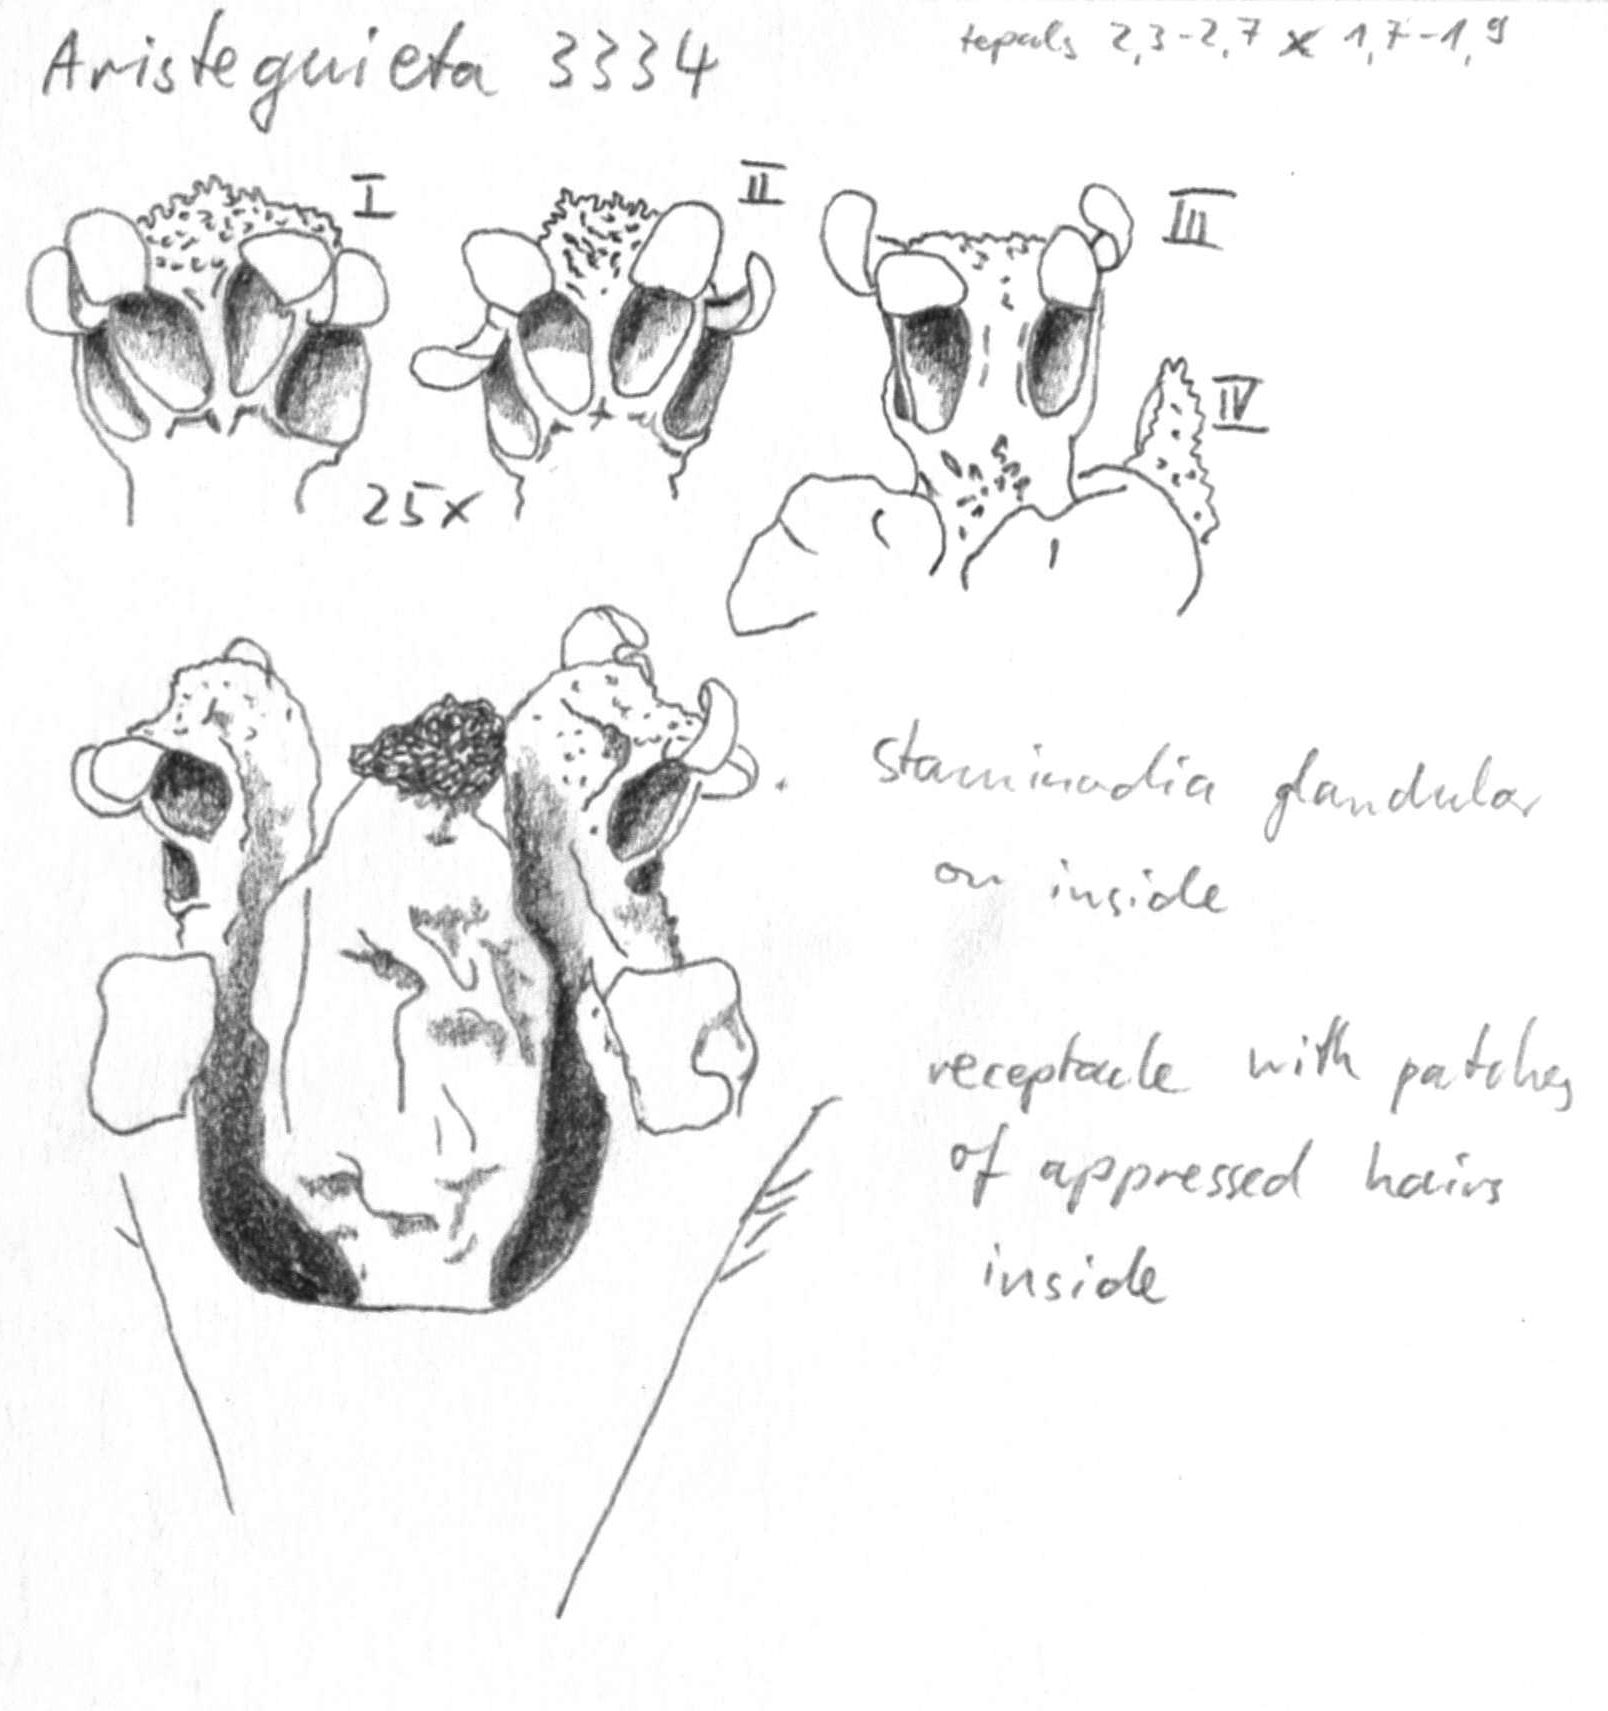 Aristeguieta 3334
tepals 2,3-2,7 x 1,7-1,9
I
II
III
IV
25x
staminodia glandular
on inside
receptacle with patches
of appressed hairs
inside